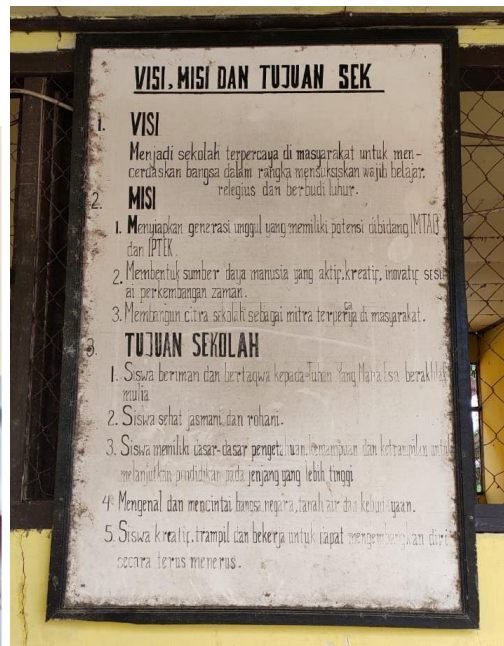 VISI, MISI DAN TUJUAN SEK
1. VISI
Menjadi sekolah terpercaya di masyarakat untuk men-
cerdaskan bangsa dalam rangka mensuksiskan wajib belajar.
relegius dan berbudi luhur.
2. MISI
1. Menyiapkan generasi unggul yang memiliki potensi dibidang IMTAQ
dan IPTEK.
2. Membentuk sumber daya manusia yang aktif.kreatif, inovatif sesu-
ai perkembangan zaman.
3. Membangun citra sekolah sebagai mitra terpercaya di masyarakat.
3. TUJUAN SEKOLAH
1. Siswa beriman dan bertaqwa kepada Tuhan Yang Maha Esa berakhlak
mulia
2. Siswa sehat jasmani, dan rohani.
3. Siswa memiliki dasar-dasar pengetahuan.kemampuan dan ketrampilan untuk
melanjutkan pendidikan pada jenjang yang lebih tinggi
4. Mengenal dan mencintai bangsa,negara,tanah air dan kebudayaan.
5. Siswa kreatif, trampil dan bekerja untuk dapat mengembangkan diri
secara terus menerus.